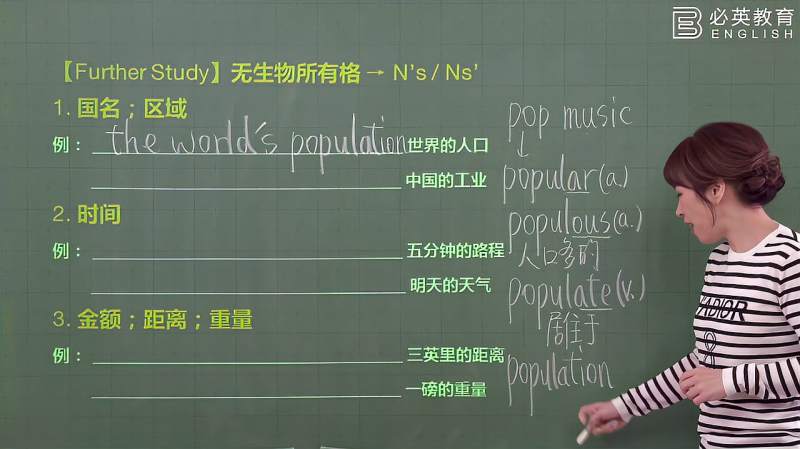 必英教育
ENGLISH
【Further Study】无生物所有格 → N's / Ns'
1. 国名；区域
例： the world's population 世界的人口
中国的工业
2. 时间
例： 五分钟的路程
明天的天气
3. 金额；距离；重量
例： 三英里的距离
一磅的重量
pop music
↓
popular (a.)
populous (a.)
人口多的
populate (v.)
居住于
population